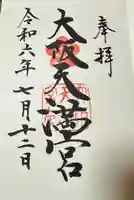 奉拝
大阪天満宮
令和六年七月十二日